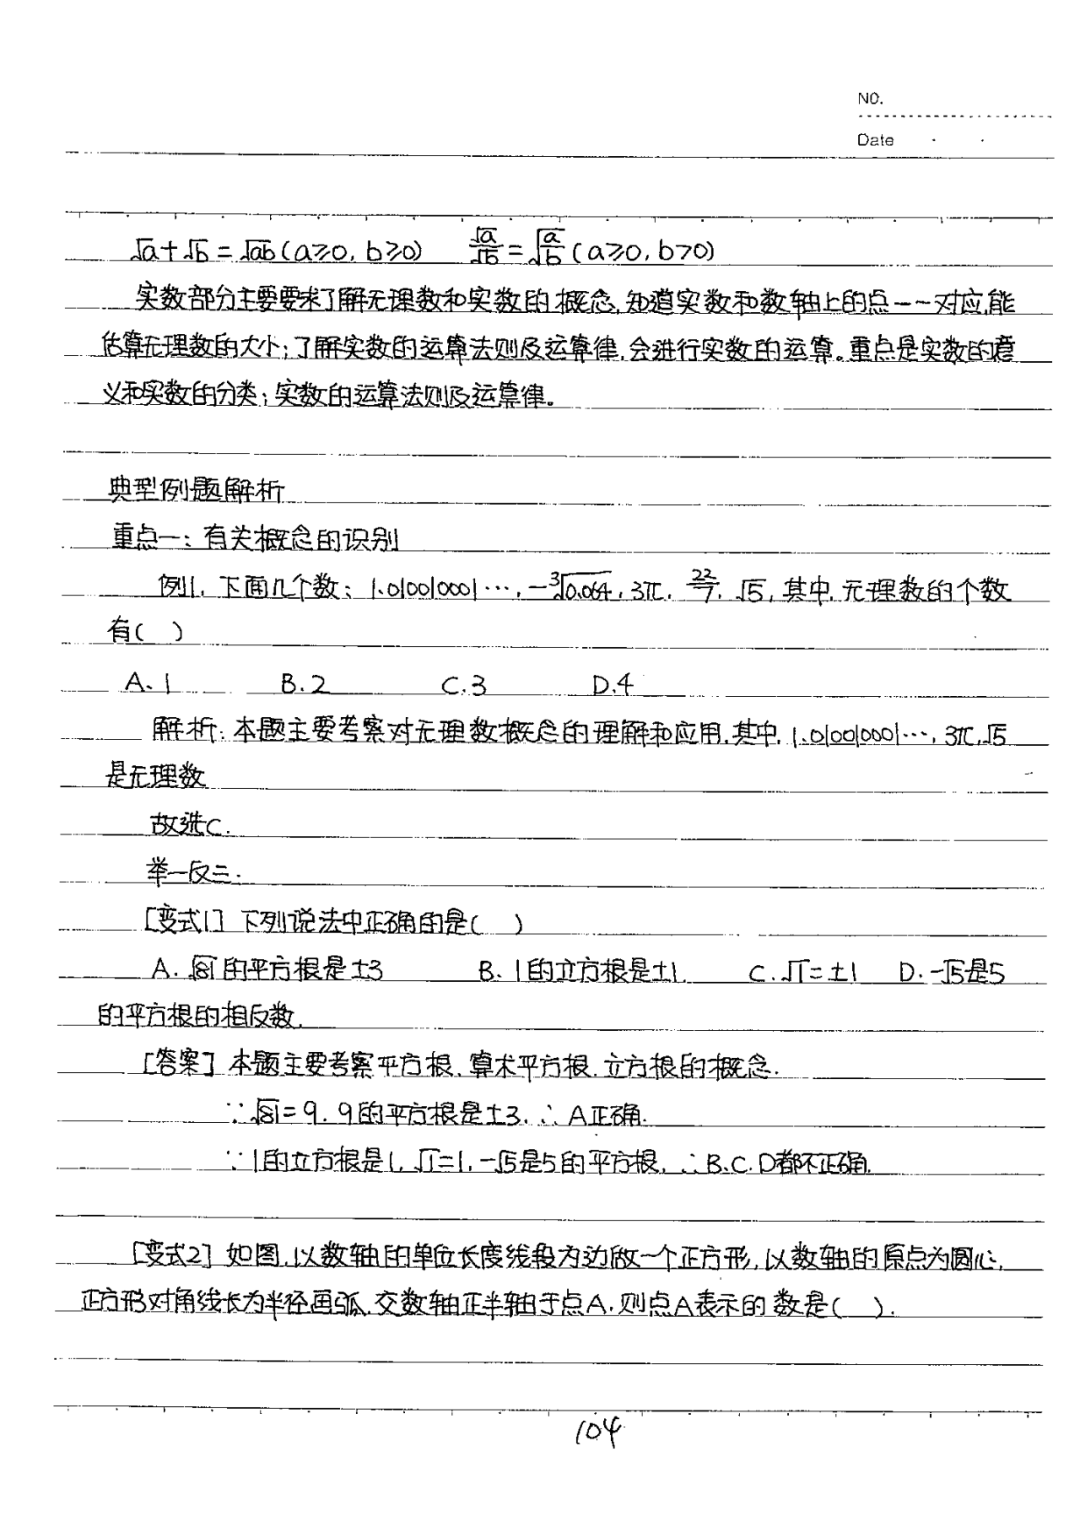 NO.
Date
√a+√b=√ab(a≥0,b≥0) √a/√b=√(a/b)(a≥0,b>0)
实数部分主要要求了解无理数和实数的概念,知道实数和数轴上的点一一对应,能
估算无理数的大小;了解实数的运算法则及运算律,会进行实数的运算。重点是实数的意
义和实数的分类;实数的运算法则及运算律。
典型例题解析
重点一:有关概念的识别
例1.下面几个数:1.010010001…,-∛0.064,3π,22/7,√5,其中,无理数的个数
有( )
A.1 B.2 C.3 D.4
解析:本题主要考察对无理数概念的理解和应用,其中,1.010010001…,3π,√5
是无理数
故选C.
举一反三:
[变式1]下列说法中正确的是( )
A.√81的平方根是±3 B.1的立方根是±1. C.√1=±1 D.-√5是5
的平方根的相反数.
[答案]本题主要考察平方根、算术平方根、立方根的概念.
∵√81=9.9的平方根是±3.∴A正确.
∵1的立方根是1,√1=1,-√5是5的平方根,∴B.C.D都不正确.
[变式2]如图,以数轴的单位长度线段为边做一个正方形,以数轴的原点为圆心,
正方形对角线长为半径画弧,交数轴正半轴于点A,则点A表示的数是( ).
104